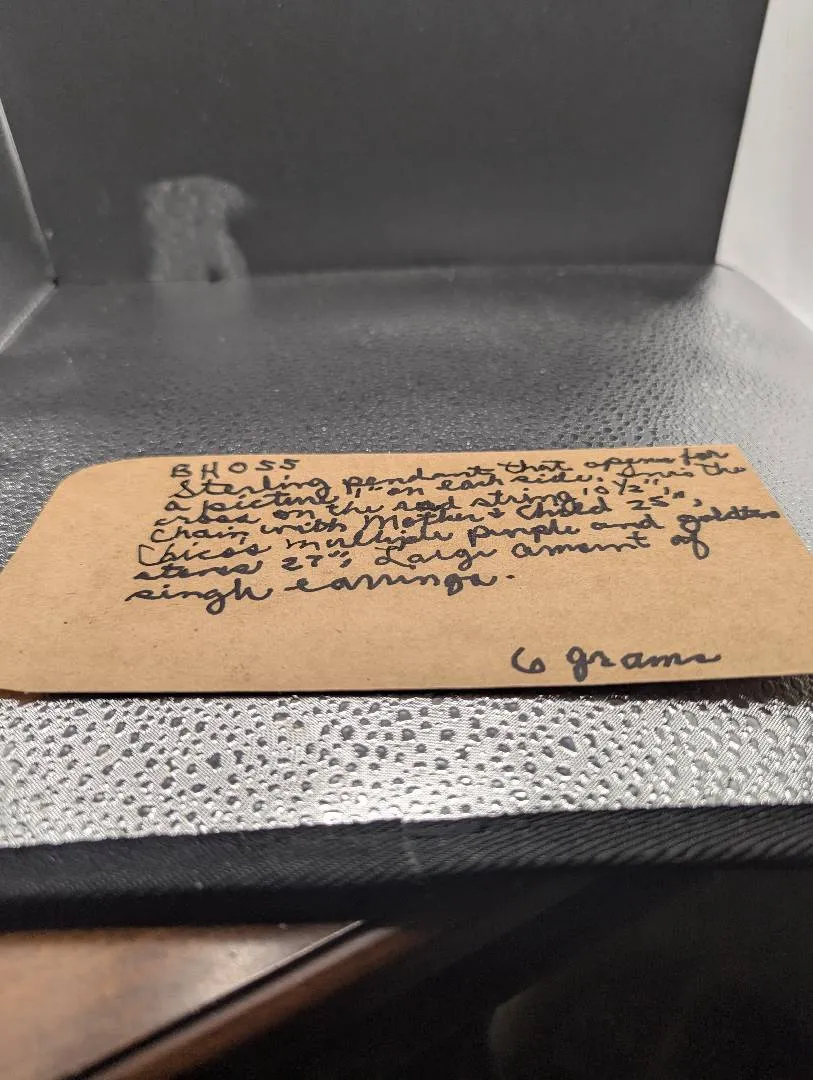 BHOSS
Sterling pendant that opens for
a picture, 1" on each side, Jesus the
cross on the red string 10 1/2",
Chain with Mother + Child 25",
Chicos multiple purple and golden
stones 27", Large amount of
singh earrings.
6 grams